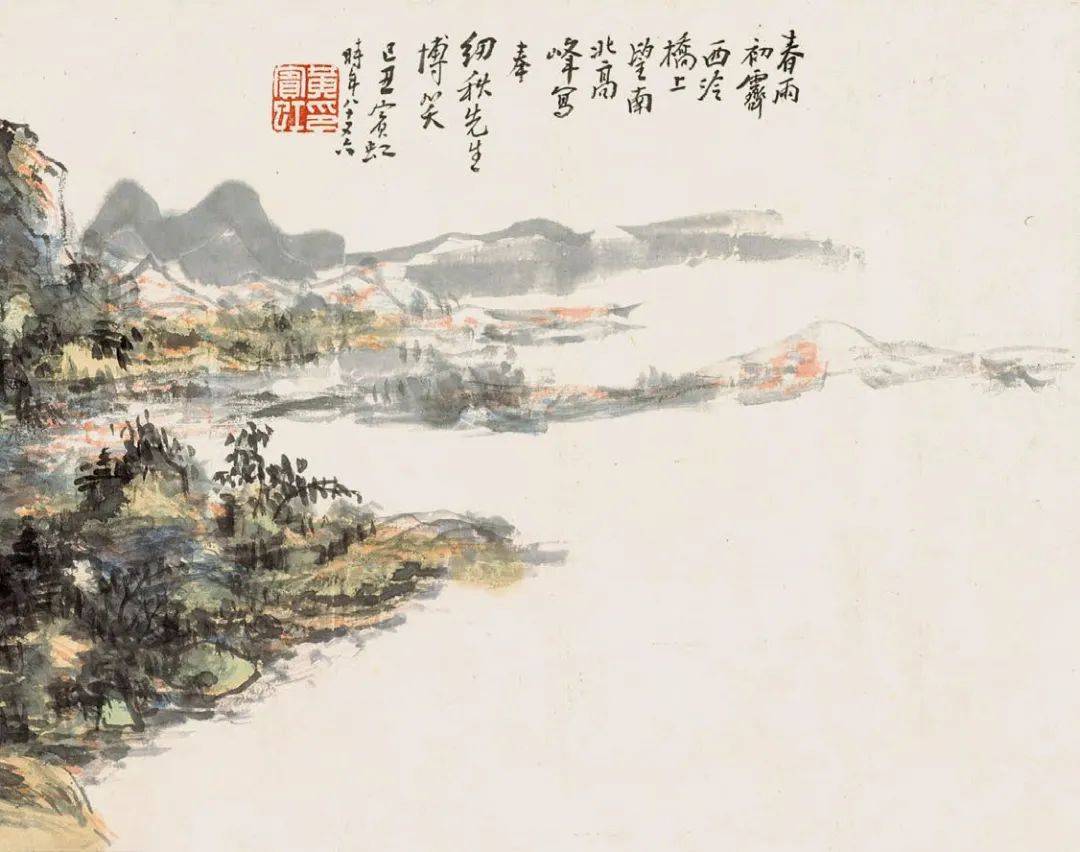 春雨
初霽
西泠
橋上
望南
北高
峰寫
奉
紉秋先生
博笑
己丑賓虹
時年八十又六
黃印
賓虹